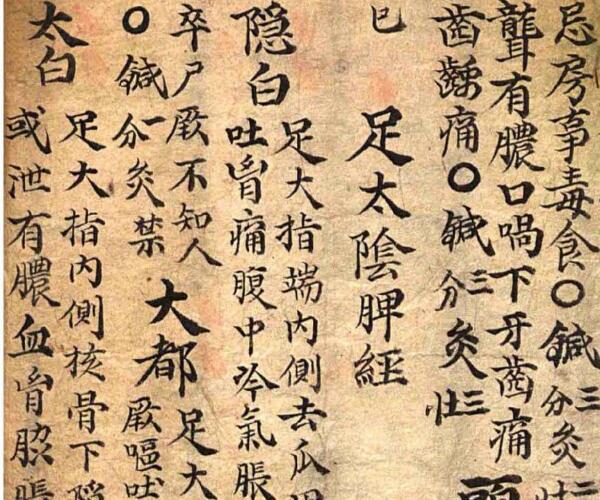 忌房事毒食〇鍼三分灸三
聾有膿口喎下牙齒痛
齒齲痛〇鍼三分灸三壯
巳
足太陰脾經
隱白
足大指端內側去爪
吐胷痛腹中冷氣脹
卒尸厥不知人
〇鍼一分灸禁
大都
足大
厥嘔吐
太白
足大指內側核骨下陷
或泄有膿血胷脇脹